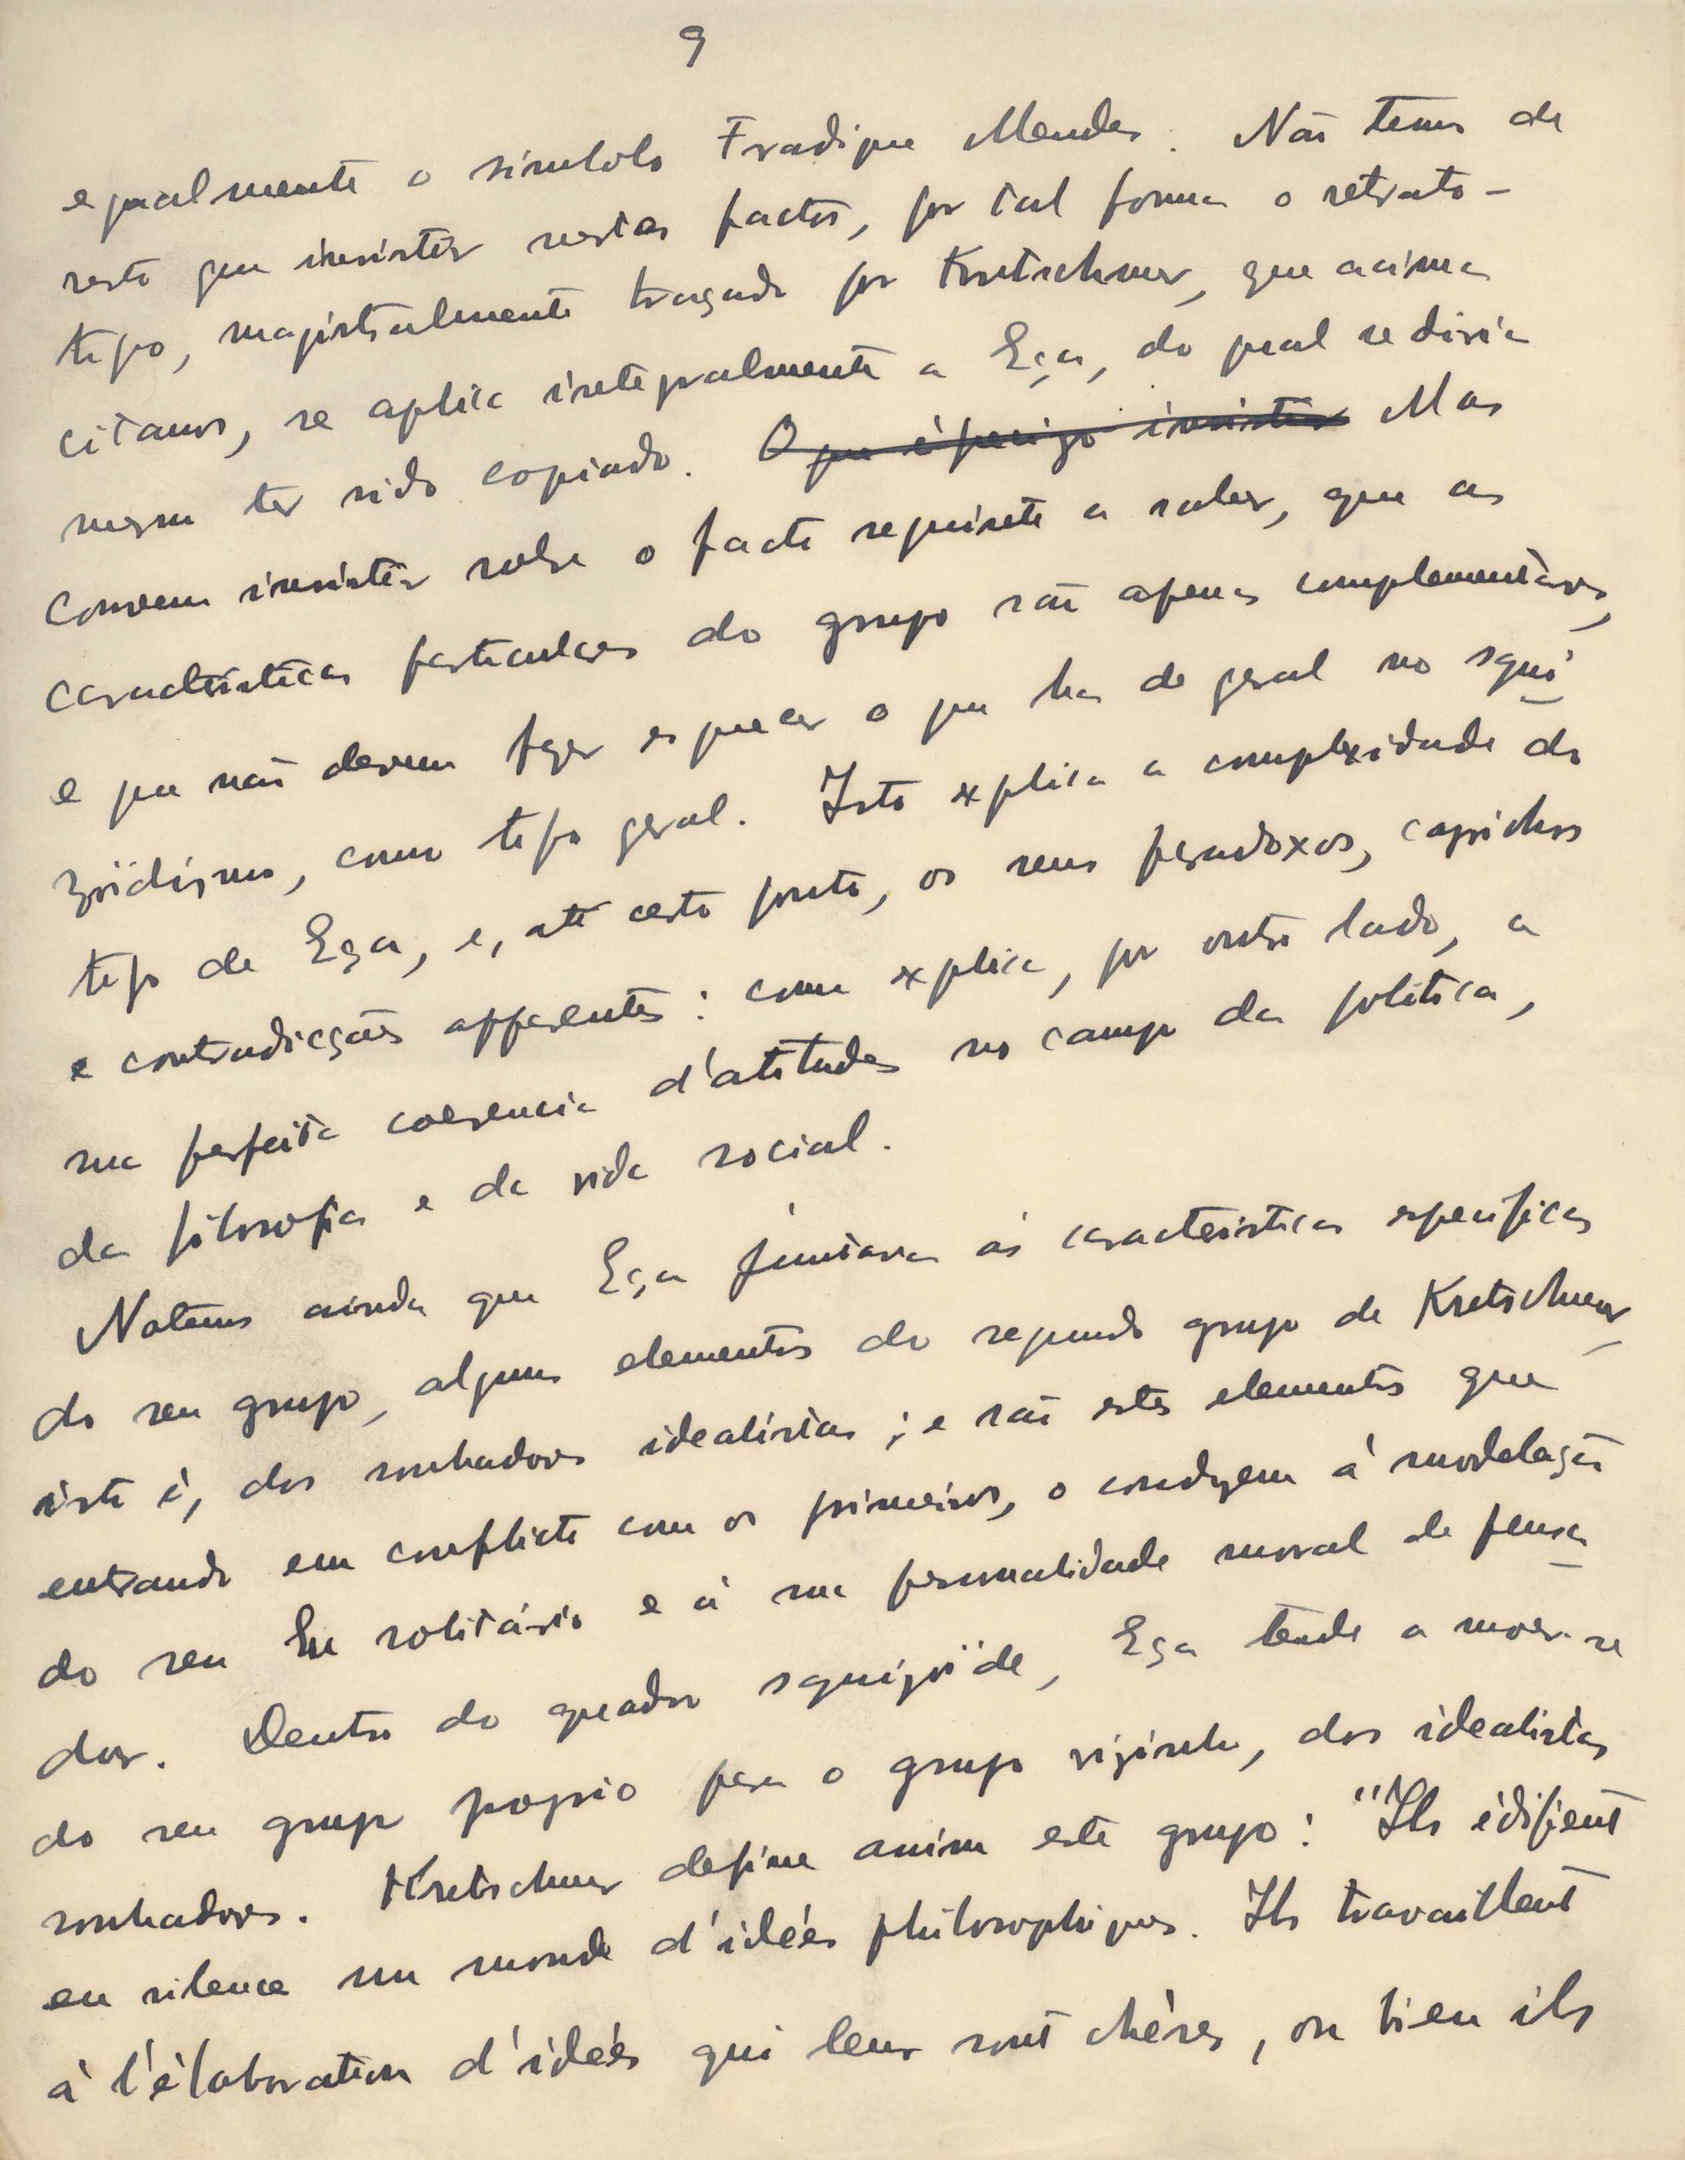 9
egualmente o simbolo Fradique Mendes. Não temos de
resto que insistir nestes factos, por tal forma o retrato-
tipo, magistralmente traçado por Kretschmer, que acima
citamos, se aplica integralmente a Eça, do qual se diria
mesmo ter sido copiado. O que é preciso insistir Mas
convem insistir sobre o facto seguinte a saber, que as
caracteristicas particulares do grupo são apenas complementares,
e que não devem fazer esquecer o que ha de geral no squi-
zoïdismo, como tipo geral. Isto explica a complexidade do
tipo de Eça, e, até certo ponto, os seus paradoxos, caprichos
e contradicções apparentes: como explica, por outro lado, a
sua perfeita coerencia d'atitudes no campo da politica,
da filosofia e da vida social.
Notemos ainda que Eça juntava ás caracteristicas especificas
do seu grupo, alguns elementos do segundo grupo de Kretschmer,
isto é, dos sonhadores idealistas; e são estes elementos que
entrando em conflicto com os primeiros, o conduzem á modelação
do seu Eu solitário e á sua personalidade moral de pensa-
dor. Dentro do quadro squizoïde, Eça tende a mover-se
do seu grupo proprio para o grupo visinho, dos idealistas
sonhadores. Kretschmer define assim este grupo: "Ils édifient
en silence un monde d'idées philosophiques. Ils travaillent
à l'élaboration d'idées qui leur sont chères, ou bien ils